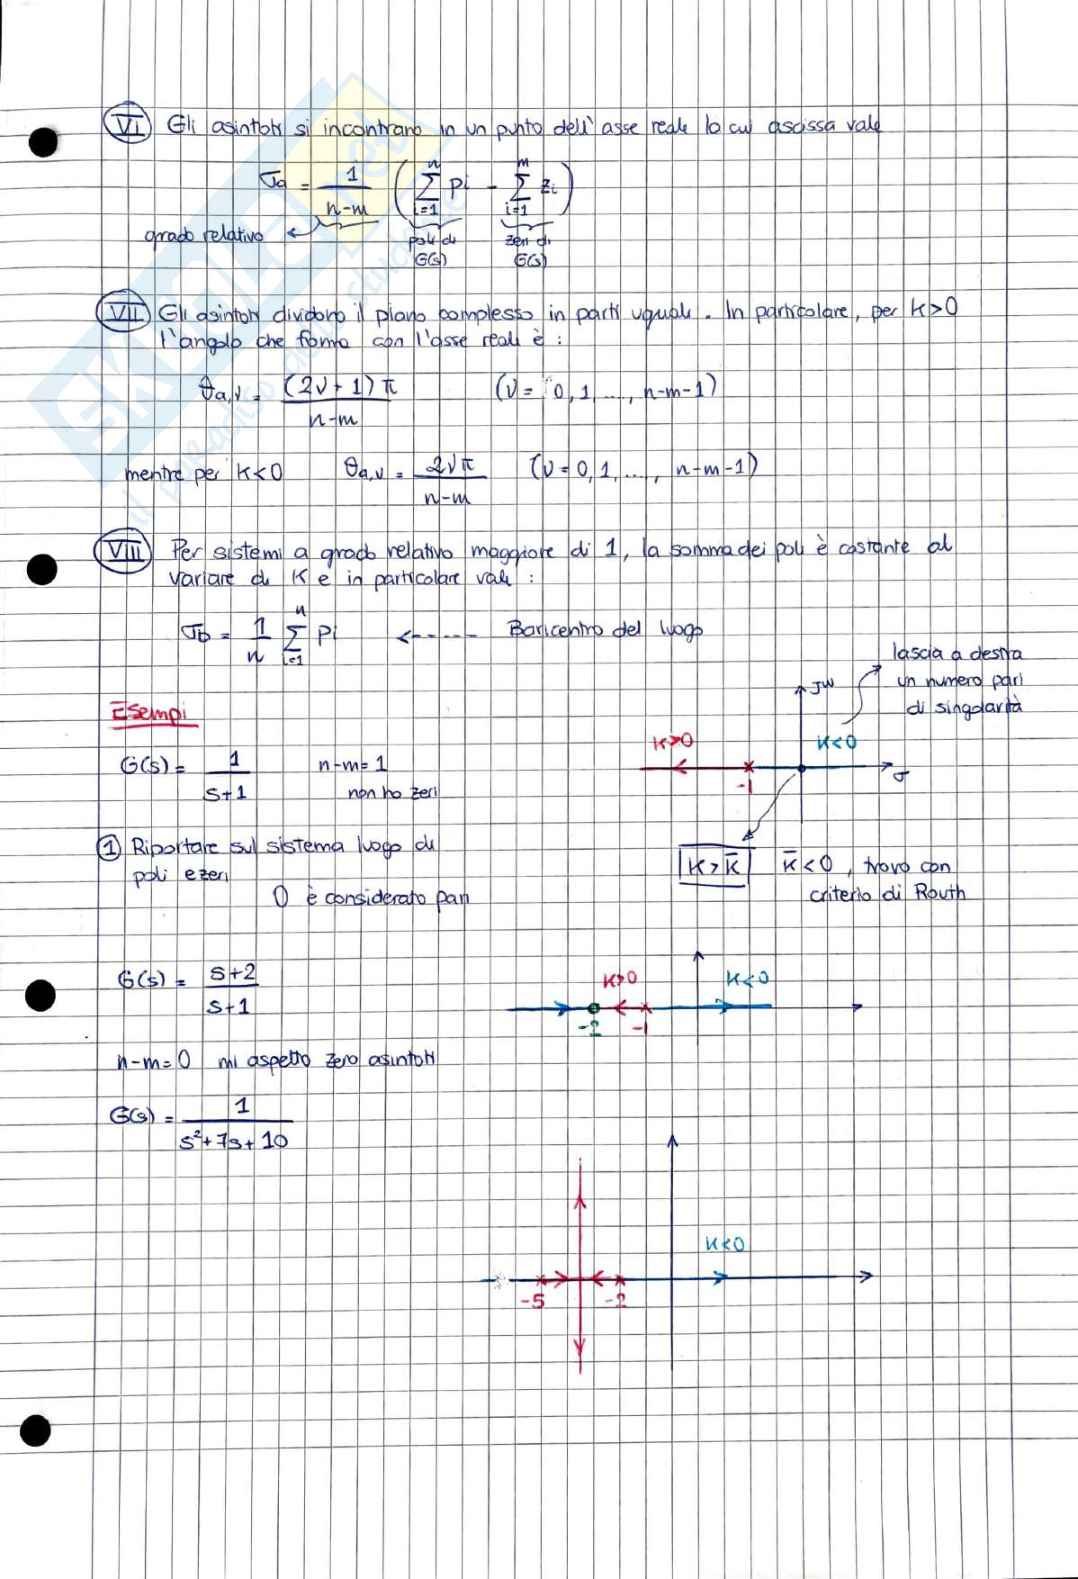 VI Gli asintoti si incontrano in un punto dell'asse reale la cui ascissa vale
σa = 1/(n-m) ( Σ_{i=1}^{n} pi - Σ_{i=1}^{m} zi )
grado relativo
poli di G(s)
zeri di G(s)
VII Gli asintoti dividono il piano complesso in parti uguali. In particolare, per K>0
l'angolo che forma con l'asse reali è :
θa,ν = (2ν+1)π/(n-m) (ν = 0, 1, ..., n-m-1)
mentre per K<0 θa,ν = 2νπ/(n-m) (ν = 0, 1, ..., n-m-1)
VIII Per sistemi a grado relativo maggiore di 1, la somma dei poli è costante al
variare di K e in particolare vale :
σb = 1/n Σ_{i=1}^{n} pi <----- Baricentro del luogo
lascia a destra
un numero pari
di singolarità
Esempi
G(s) = 1/(s+1) n-m=1
non ho zeri
jω
K>0 K<0
-1 σ
① Riportare sul sistema luogo di
poli e zeri
0 è considerato pari
K>K̄ K̄<0, trovo con
criterio di Routh
G(s) = (s+2)/(s+1)
K>0 K<0
-2 -1
n-m=0 mi aspetto zero asintoti
G(s) = 1/(s²+7s+10)
K<0
-5 -2
SKUOLA.net